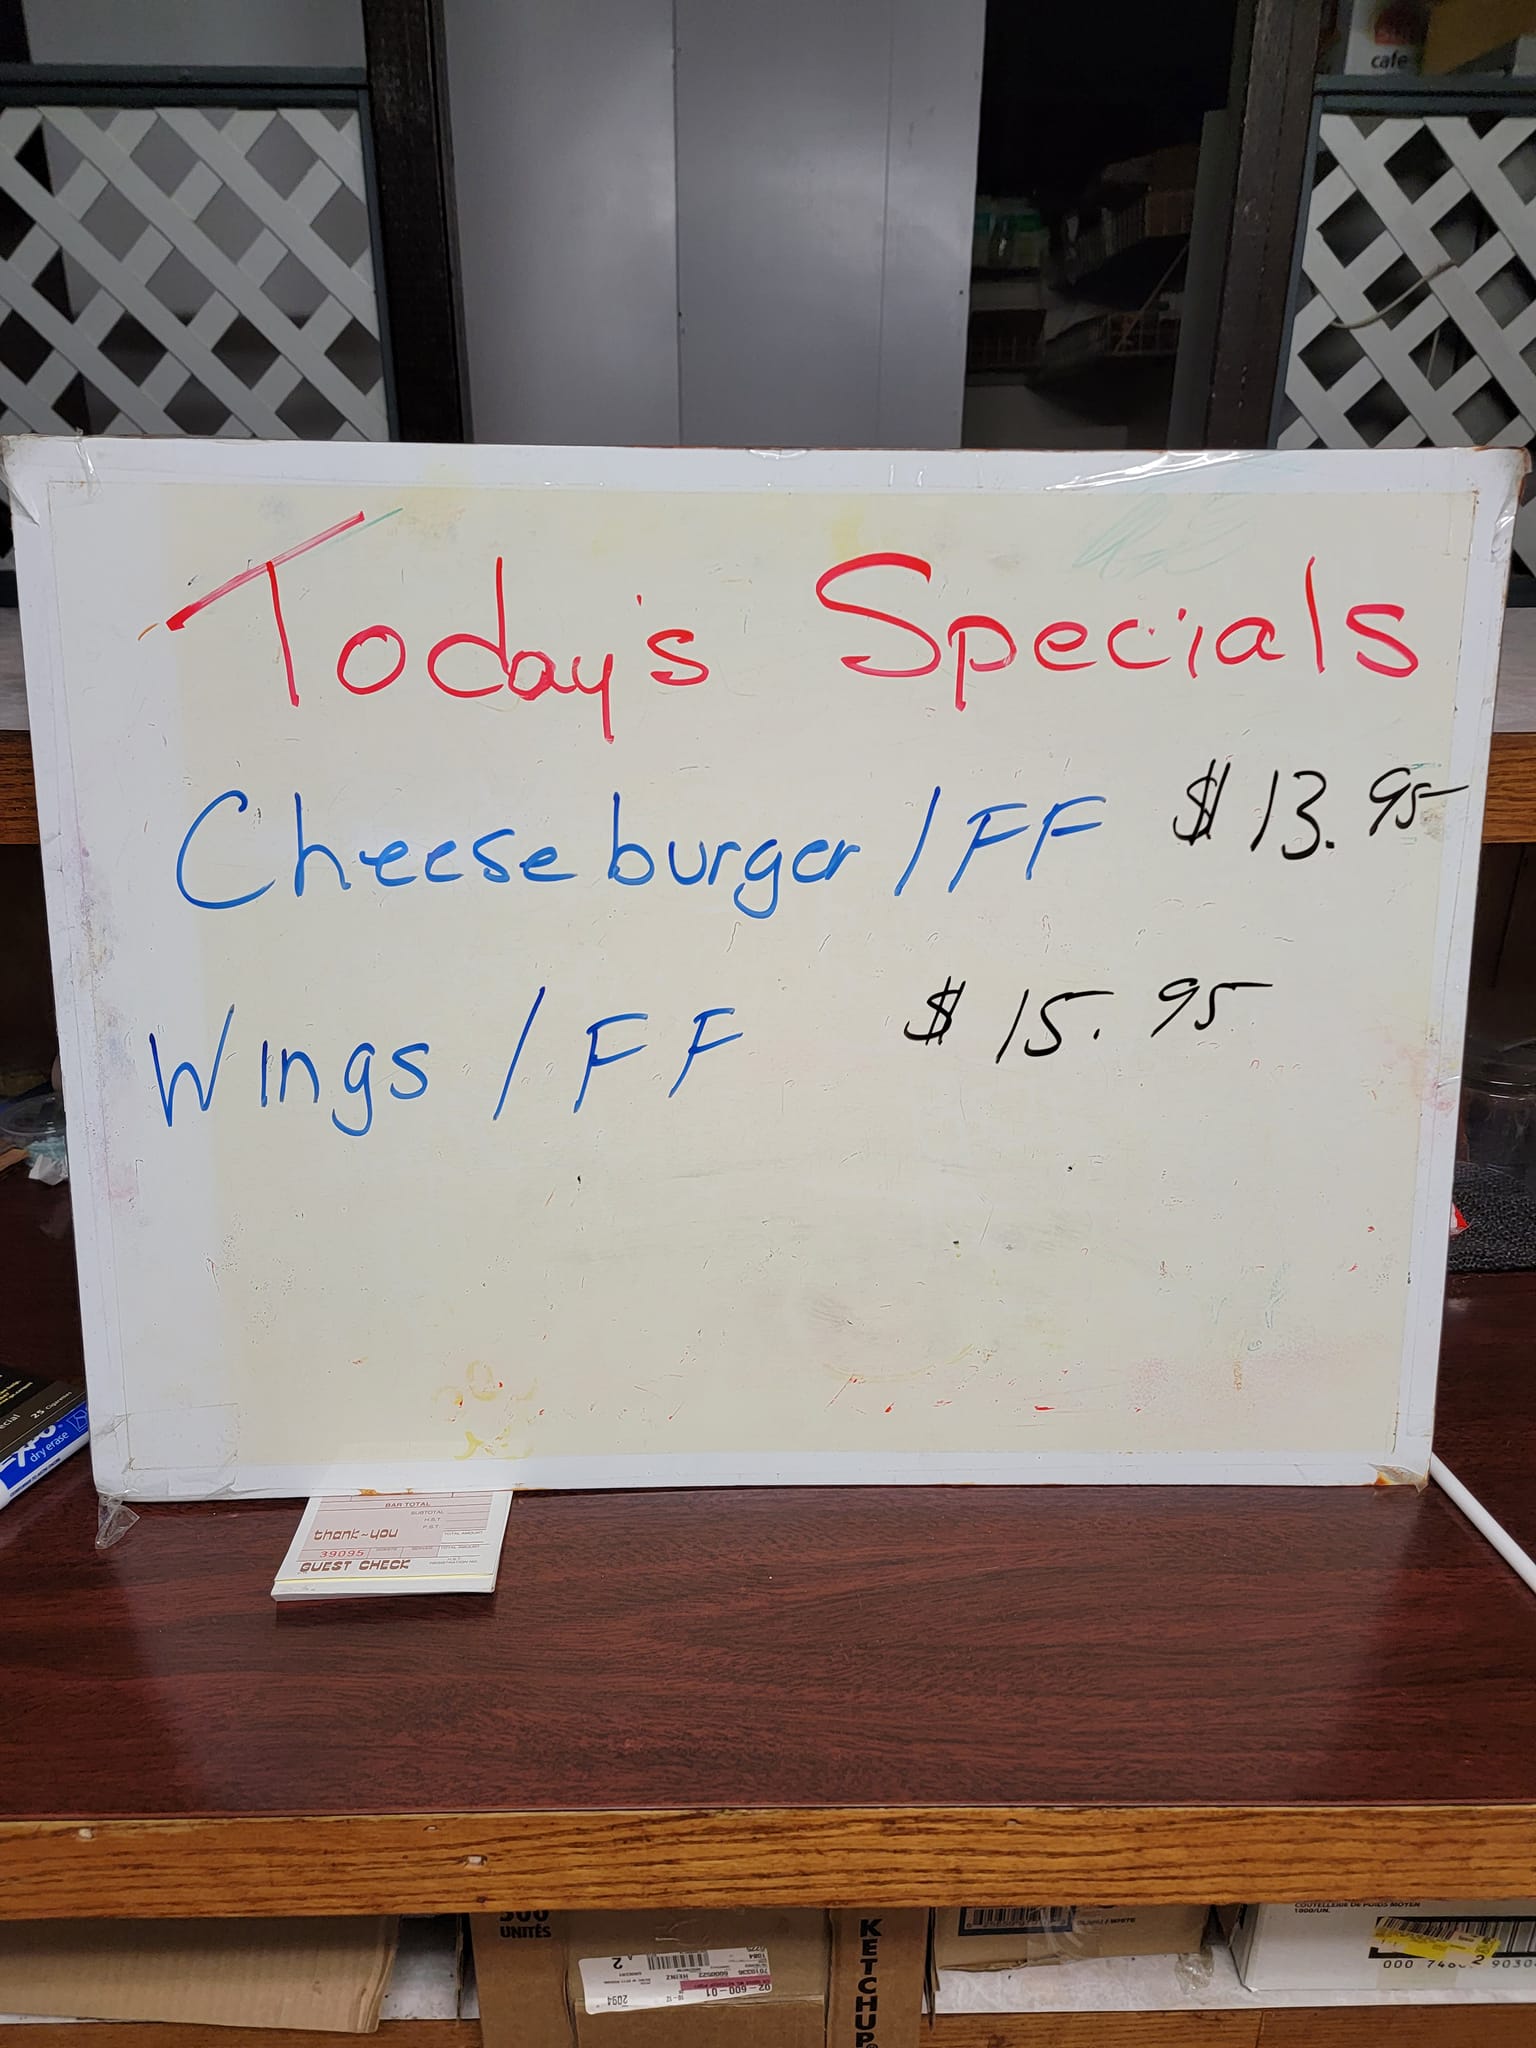 cafe
Today's Specials
Cheeseburger / FF $ 13.95
Wings / FF $ 15.95
25
EXPO
dry erase
BAR TOTAL
SUBTOTAL
H.S.T
P.S.T
thank-you
TOTAL AMOUNT
39095
GUEST CHECK
REGISTRATION NO.
500
UNITÉS
KETCHUP
HEINZ
02-600-01
2094
COUTELLERIE DE POIDS MOYEN
1000/UN.